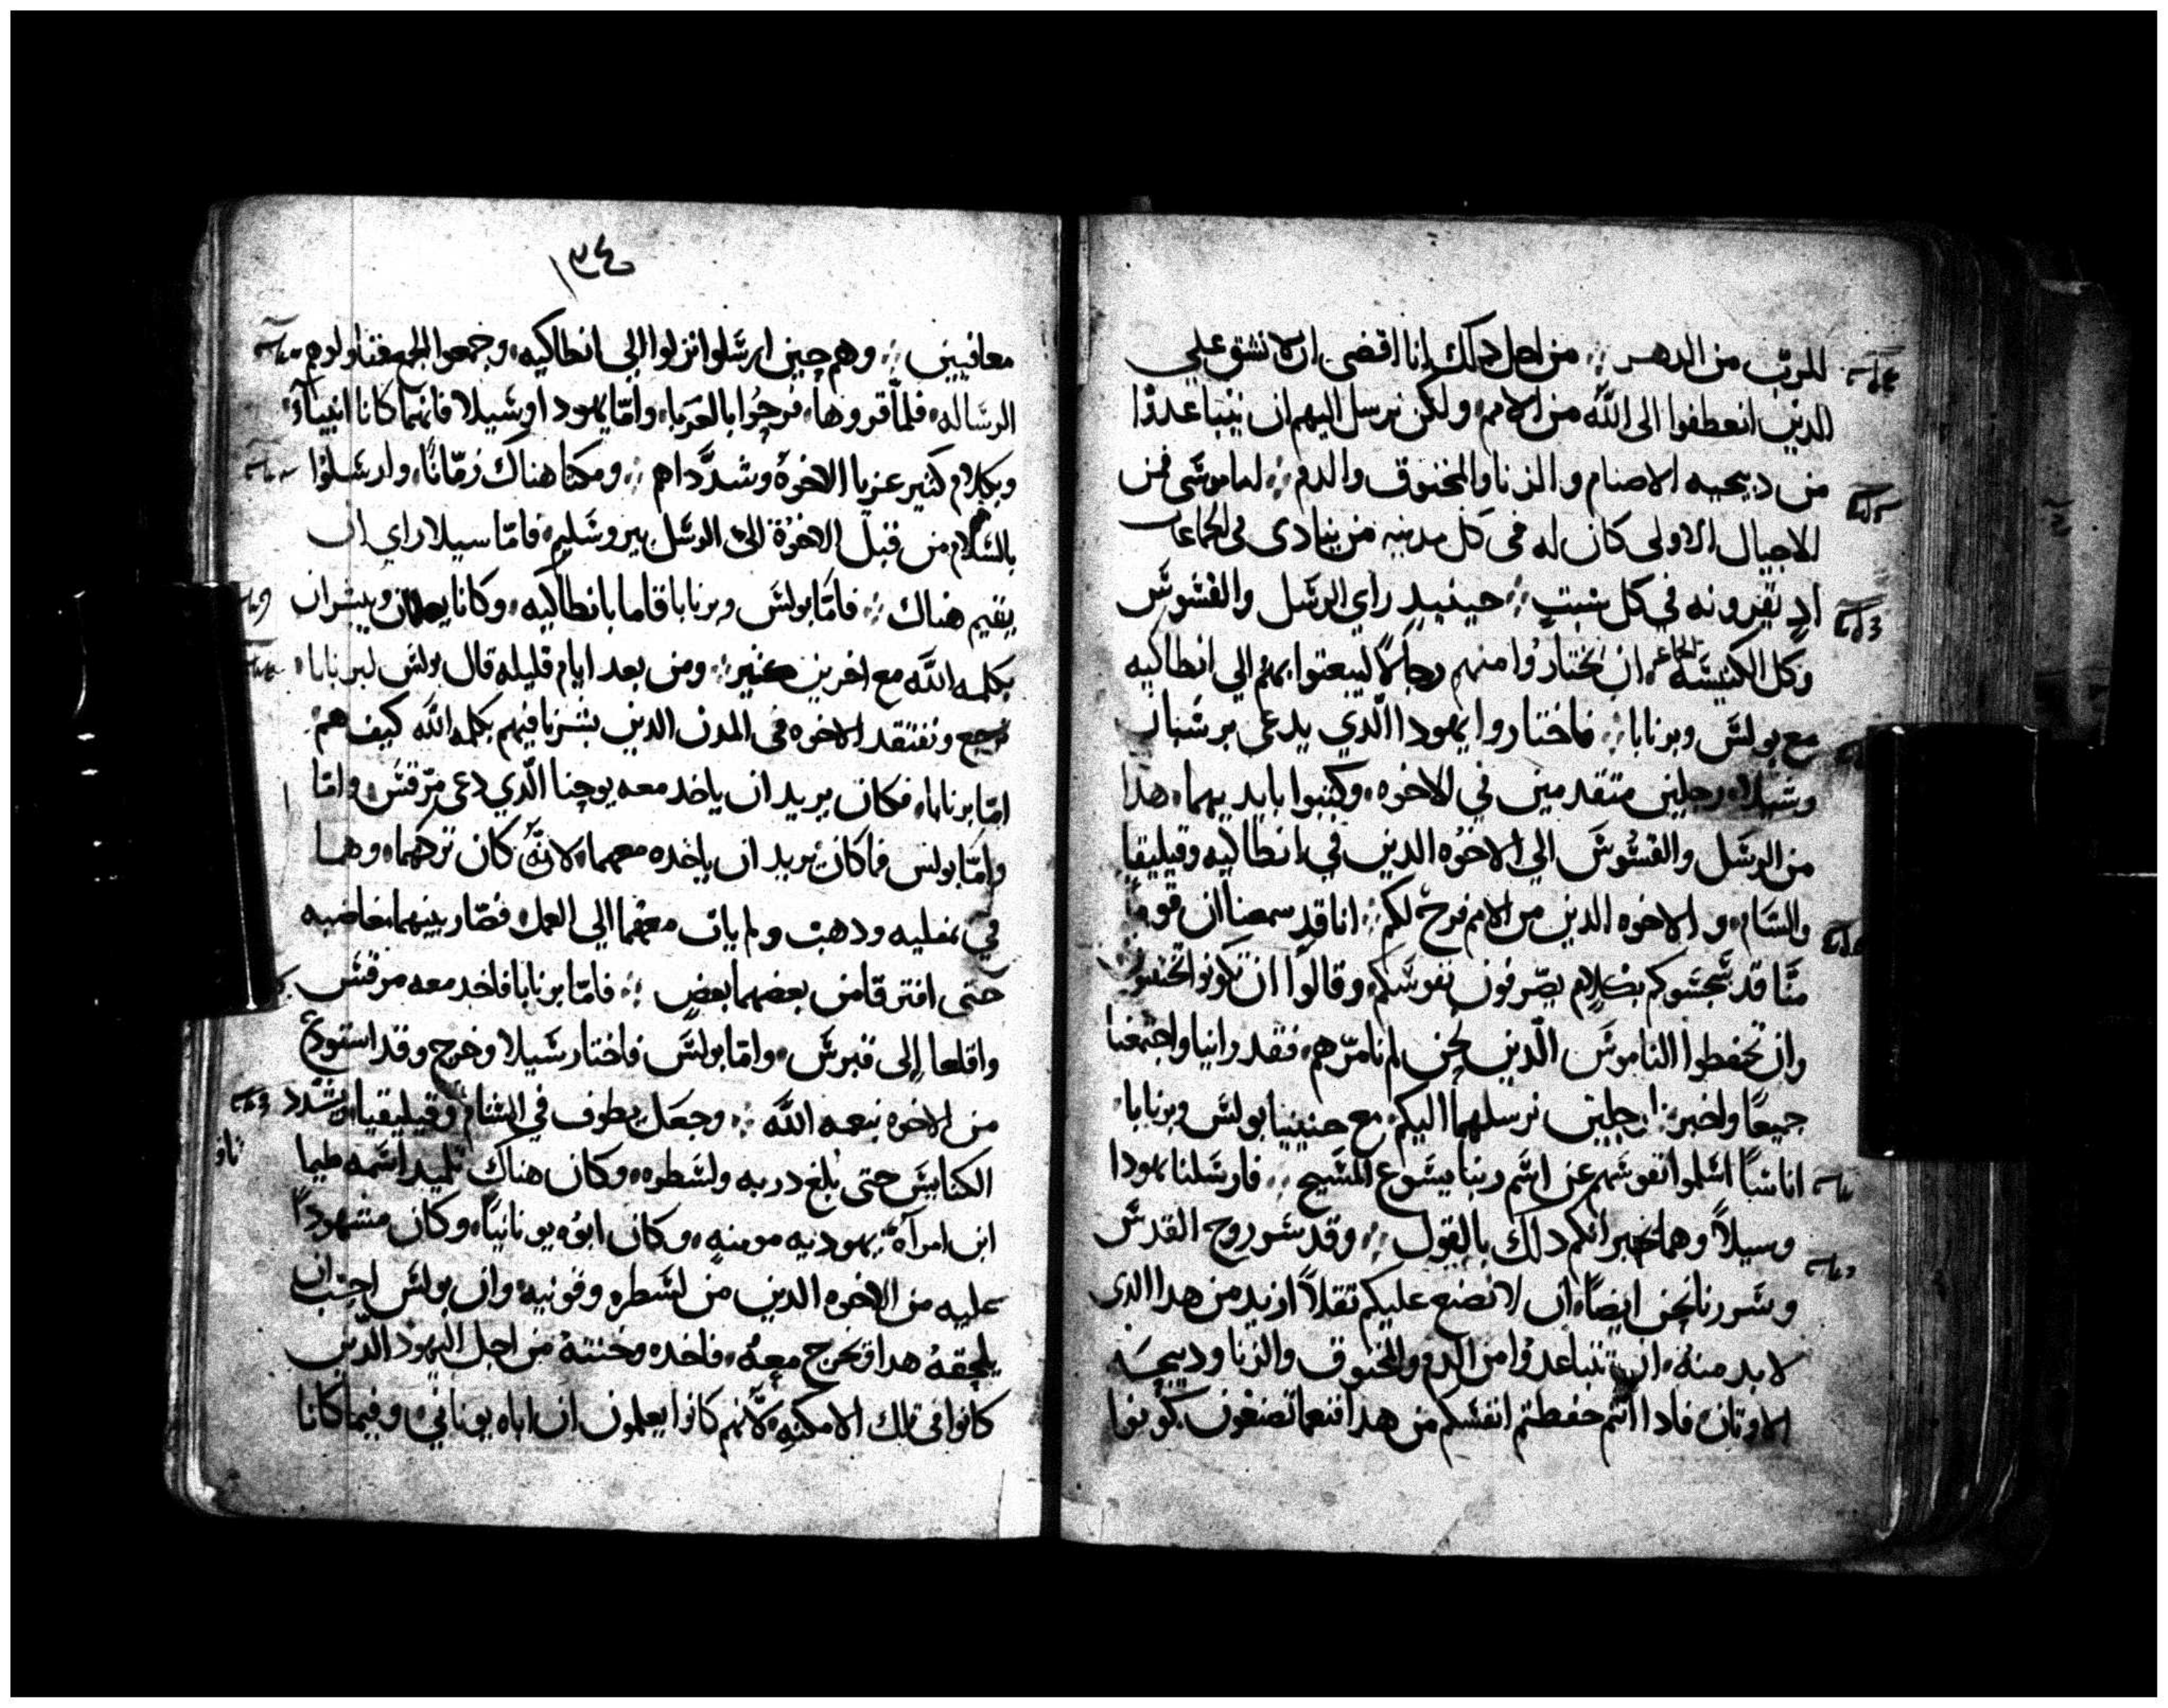 للرب من الدهر ؛ من اجل دلك انا اقضى ان لا نشق علي
الدين انعطفوا الى الله من الامم ولكن نرسل اليهم ان يتباعدوا
من دبيحه الاصنام والزنا والمخنوق والدم ؛ لان موسَى فمن
الاجيال الاولى كان له فى كل مدينه من ينادى فى الجماعات
اد يقرونه في كل سَبتٍ ؛ حينيدٍ راي الرسَل والقسُوسَ
وكل الكنيسَه ان يختاروا منهم رجالاً ليبعتوا بهم الي انطاكيه
مع بولسَ وبرنابا ؛ فاختاروا يهودا الّدي يدعى برسَاباس
وسَيلا رجلين متقدمين في الاخوه وكتبوا بايديهما هدا
من الرسَل والقسُوسَ الي الاخوُه الدين في انطاكيه وقيليقيا
والشام و الاخوه الدين من الامم فرحٌ لكم ؛ انا قد سمعنا ان قومًا
منّا قد سَجسَوكم بكلامٍ يصّرفون نفوسَكم وقالوا ان تكونوا تختتنون
وان تحفطوا الناموسَ الّدين نحن لم نامرّهم فقد راينا واجتمعنا
جميعًا واخترنا رجلين نرسلهما اليكم مع حبيبينا بولسَ وبرنابا
اناسًا اسَلموا نفوسَهم عن اسَم ربنا يسَوع المسَيح ؛ فارسَلنا يهودا
وسيلاً وهما يخبرانكم دلك بالقول ؛ وقد سَر روح القدسَ
وسَررنا نحن ايضًا ان لا نضع عليكم تقلاً ازيد من هدا الدى
لا بد منه ان تتباعدوا من الدم والمخنوق والزنا ودبيحَه
الاوتان فادا انتم حفطتم انفسَكم من هدا فنعما تصنعون كونوا
٣٤
معافيين ؛ وهم حين ارسَلوا نزلوا الى انطاكيه وجمعوا الجمع فناولوهم
الرسَاله فلمّا قروها فرحُوا بالعزيا وامّا يهودا وسَيلا فانهما كانا انبياء
وبكلام كثير عزيا الاخوة وشدَّداهم ؛ ومكتا هناك زمّانًا وارسَلوا
بالسَلام من قبل الاخوُة الى الرسَل بيروشليم فامّا سيلا راي ان
يقيم هناك ؛ فامّا بولسَ وبرنابا قاما بانطاكيه وكانا يعلمان ويبشران
بكلمه الله مع اخرين كتير ؛ ومن بعد ايام قليله قال بولسَ لبرنابا
نرجع ونفتقد الاخوه فى المدن الدين بشرنا فيهم بكلمه الله كيف هم
امّا برنابا فكان يريد ان ياخد معه يوحنا الّدي دعى مرّقسَ وامّا
وامّا بولس فما كان يريد ان ياخده معهما لانهُ كان تركهما وهما
في بمفليه ودهب ولم يات معهما الى العمل فصّار بينهما مغاضبه
حتى افترقا من بعضهما بعضٍ ؛ فامّا برنابا فاخد معه مرقسَ
واقلعا إلى قبرسَ وامّا بولسَ فاختار سَيلا وخرج وقد استودع
من الاخوه نعمه الله ؛ وجعَل يطوف في الشام وقيليقيا ويشدد
الكنايسَ حتى بلغ دربه ولسَطره وكان هناك تلميد اسَمه طيما
تاو
ابن امرآة يهوديه مومنه وكان ابوه يونانيًا وكان مشهودًا
عليه من الاخوه الدين من لسَطره وقونيه وان بولسَ احتبان
يلحقهُ هدا فخرج معهُ فاخده وختنهُ من اجل اليهود الدين
كانوا فى تلك الامكنه لانهم كانوا يعلمون ان اباه يوناني وفيما كانا